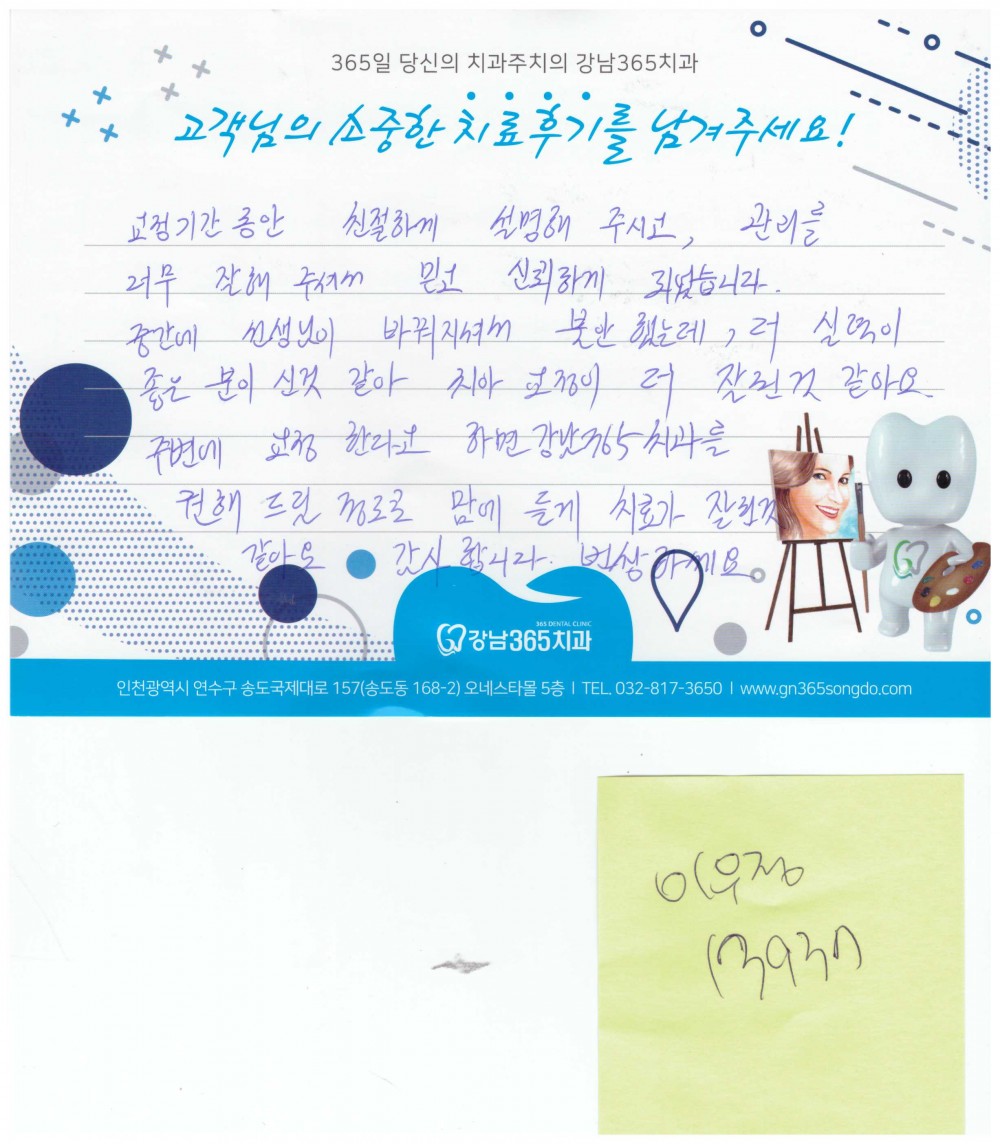 365일 당신의 치과주치의 강남365치과
고객님의 소중한 치료후기를 남겨주세요!
교정기간 동안 친절하게 설명해 주시고, 관리를
너무 잘해 주셔서 믿고 신뢰하게 되었습니다.
중간에 선생님이 바뀌지셔서 불안 했는데, 더 실력이
좋은 분이 신것 같아 치아 교정이 더 잘된것 같아요.
주변에 교정 한다고 하면 강남365치과를
권해 드릴 정도로 맘에 들게 치료가 잘된것
같아요 감사 합니다. 번창 하세요
365 DENTAL CLINIC
강남365치과
인천광역시 연수구 송도국제대로 157(송도동 168-2) 오네스타몰 5층 I TEL. 032-817-3650 I www.gn365songdo.com
이우정